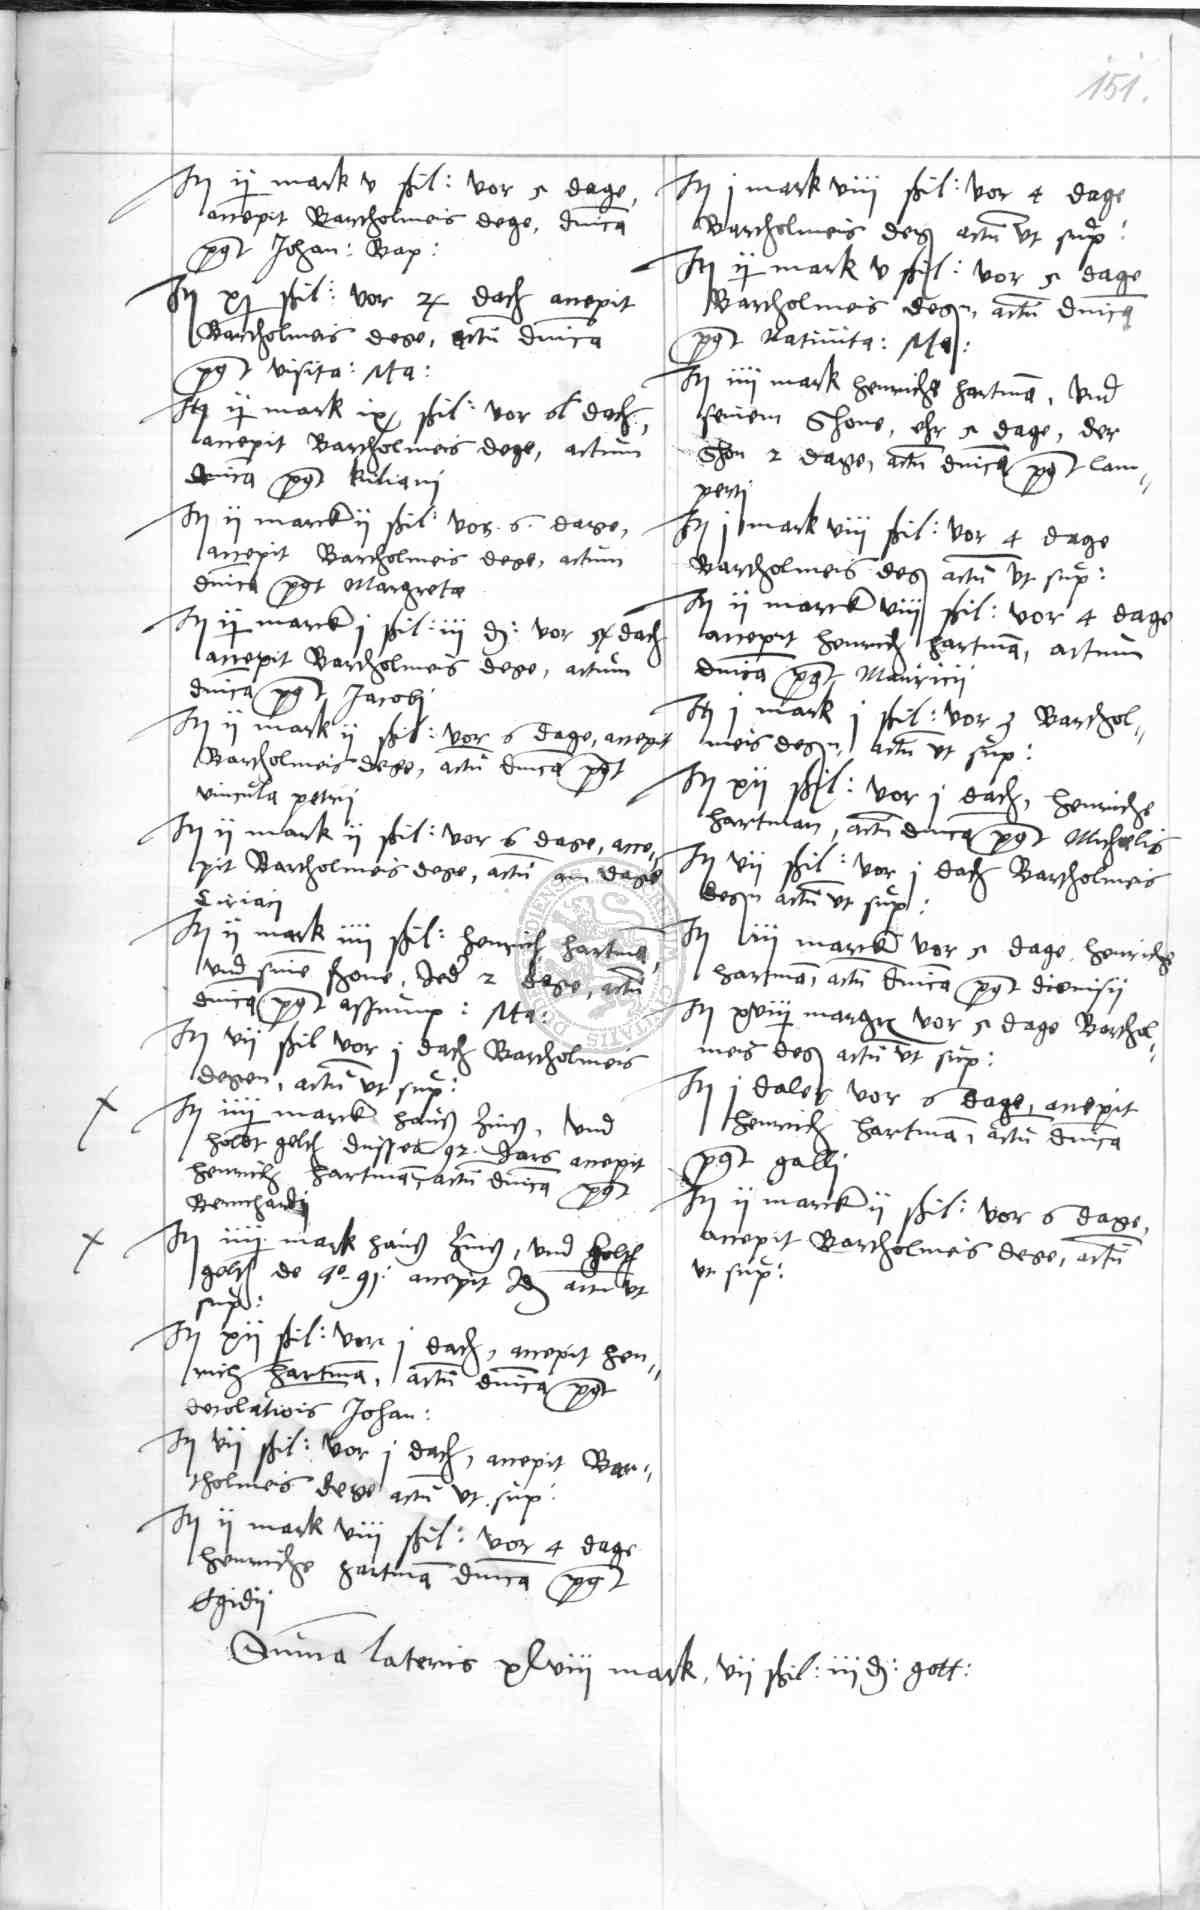 151.
It ij mark v ßil: vor 5 dage,
accepit Bartholmeis dege, dnica
post Johan: Bap:
It xj ßil: vor dach accepit
Bartholmeis dege, actu dnica
post visita: Ma:
It ij mark ix ßil: vor dach,
accepit Bartholmeis dege, actum
dnica post Kiliani
It ij marck ij ßil: vor .6. dage,
accepit Bartholmeis dege, actum
dnica post Margreta
It ij marck j ßil: iij d: vor dach
accepit Bartholmeis dege, actum
dnica post Jacobj
It ij mark ij ßil: vor 6 dage, accepit
Bartholmeis dege, actu dnica post
vincula petrij
It ij mark ij ßil: vor 6 dage, acce„
pit Bartholmeis dege, actu am dage
Ciriaci
It ij mark iiij ßil: henrich hartma,
vnd sine shone, Jed 2 dage, actu
dnica post assump: Ma:
It vij ßil vor j dach Bartholmeis
degen, actu vt sup:
It iiij marck hauß zinß, vnd
holt gelt dusses 92. Jars accepit
henrich hartma, actu dnica post
Bernhardj
It iiij mark hauß zinß, vnd holt
gelt de ao 91: accepit Id actu vt
sup:
It xij ßil: vor j dach, accepit hen„
rich hartma, actu dnica post
decolatiois Johan:
It vij ßil: vor j dach, accepit Bar„
tholmeis dege actu vt sup:
It ij mark viij ßil: vor 4 dage
henriche hartma dnica post
Egidij
It j mark viij ßil: vor 4 dage
Bartholmeis deg actu vt sup:
It ij mark v ßil: vor 5 dage
Bartholmeis degn, actu dnica
post Natiuita: Ma:
It iiij mark henriche hartma, vnd
seinem Shone, ehr 5 dage, der
Shon 2 dage, actu dnica post lam„
perti
It j mark viij ßil: vor 4 dage
Bartholmeis deg actu vt sup:
It ij marck viij ßil: vor 4 dage
accepit henrich hartma, actum
dnica post Mauricij
It j mark j ßil: vor 3 Barthol„
meis degn, actu vt sup:
It xij ßil: vor j dach, henriche
hartman, actu dnica post Michelis
It vij ßil: vor j dach Bartholmeis
degn actu vt sup:
It iij marck vor 5 dage henriche
hartma, actu dnica post dionisij
It xviij margr vor 5 dage Barthol„
meis deg actu vt sup:
It j daler vor 6 dage, accepit
henrich hartma, actu dnica
post gallj
It ij marck ij ßil: vor 6 dage,
accepit Bartholmeis dege, actu
vt sup:
Suma lateris xlviij mark, vij ßil: iij d: gott: